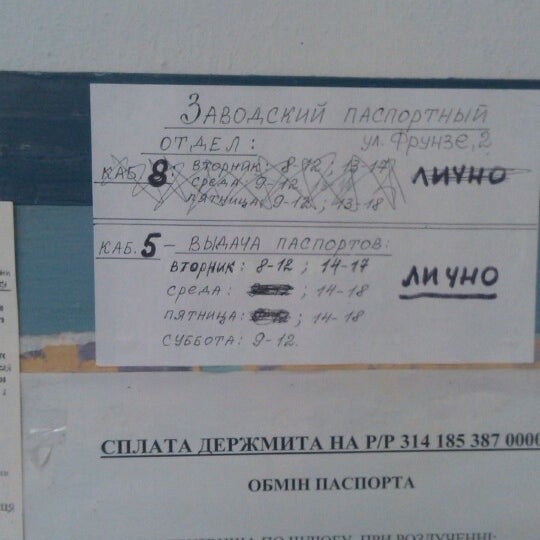 ЗАВОДСКИЙ ПАСПОРТНЫЙ
ОТДЕЛ: ул. Фрунзе, 2
КАБ. 8: ВТОРНИК: 8-12 ; 13-17 ЛИЧНО
СРЕДА: 9-12
ПЯТНИЦА: 9-12 ; 13-18
КАБ. 5 - ВЫДАЧА ПАСПОРТОВ:
ВТОРНИК: 8-12 ; 14-17 ЛИЧНО
СРЕДА: ; 14-18
ПЯТНИЦА: ; 14-18
СУББОТА: 9-12.
СПЛАТА ДЕРЖМИТА НА Р/Р 314 185 387 0000
ОБМІН ПАСПОРТА